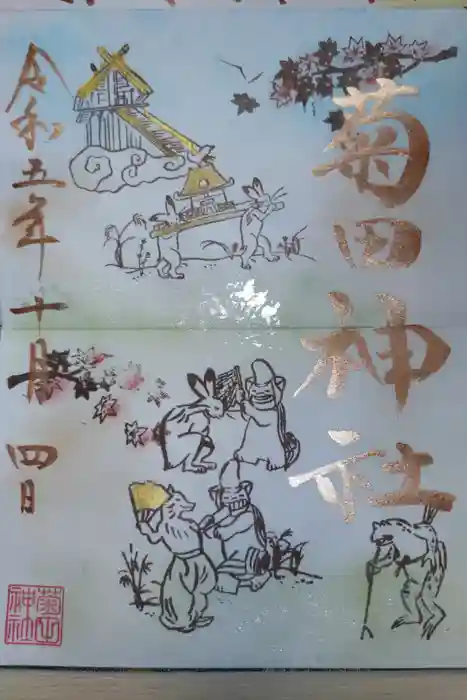 菊田神社
令和五年十月四日
菊田神社